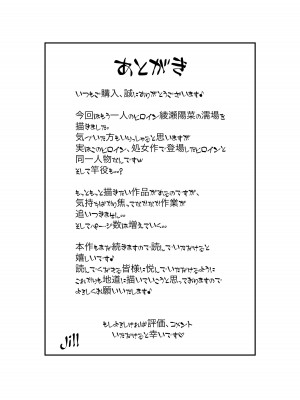 あとがき
いつもご購入、誠にありがとうございます♪
今回はもう一人のヒロイン綾瀬陽菜の濡場を
描きました。
気づいた方もいらっしゃると思いますが
実はこのヒロイン、処女作で登場したヒロインと
同一人物だしですw
そして竿役も…?
もっともっと描きたい作品があるのですが、
気持ちばかり焦ってなかなか作業が
追いつきません…
そしてページ数は増えていく…
本作もまだ続きますので読んでいただけると
嬉しいです♪
読んでくださる皆様に悦んでいただけるように
これからも地道に描いていこうと思っておりますので
よろしくお願いいたします♪
もしよろしければ評価、コメント
いただけると幸いです♡
Jill